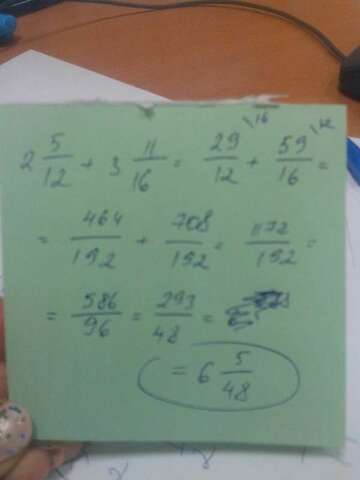 2 5/12 + 3 11/16 = 29/12 \16 + 59/16 \12 =
= 464/192 + 708/192 = 1172/192 =
= 586/96 = 293/48 =
= 6 5/48